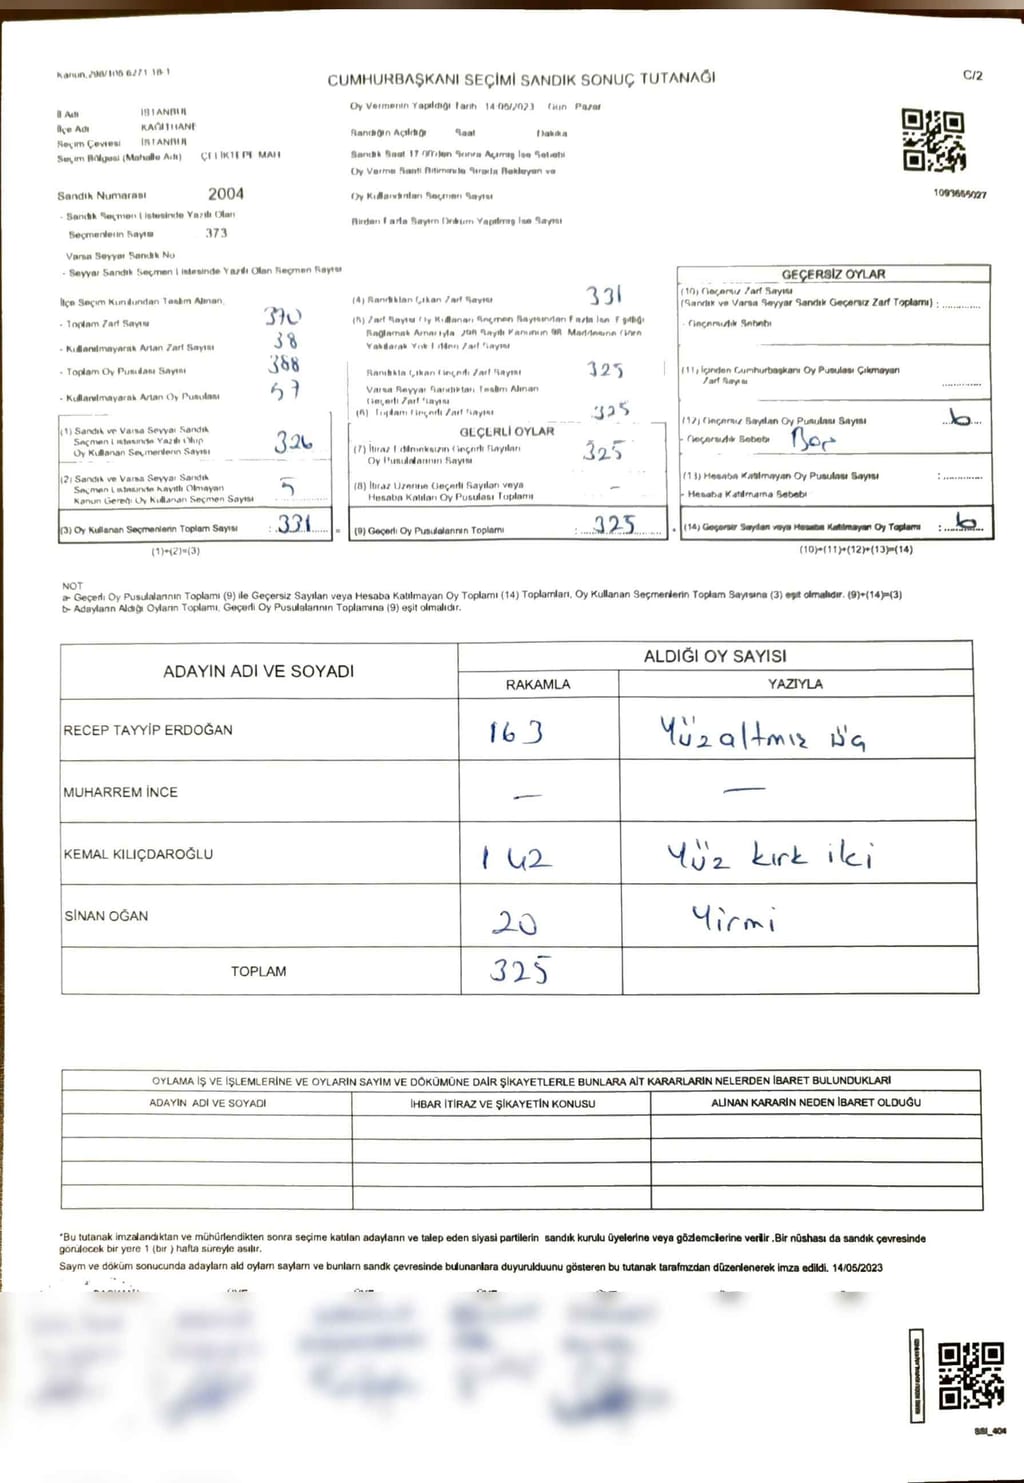 Kanun, 298/106 6271 18-1
CUMHURBAŞKANI SEÇİMİ SANDIK SONUÇ TUTANAĞI
C/2
İl Adı İSTANBUL
İlçe Adı KAĞITHANE
Seçim Çevresi İSTANBUL
Seçim Bölgesi (Mahalle Adı) ÇELİKTEPE MAH
Oy Vermenin Yapıldığı Tarih 14/05/2023 Gün Pazar
Sandığın Açıldığı Saat Dakika
Sandık Saat 17 00'den Sonra Açılmış İse Sebebi
Oy Verme Saati Bitiminde Sırada Bekleyen ve
Oy Kullandırılan Seçmen Sayısı
Birden Fazla Sayım Döküm Yapılmış İse Sayısı
1093655027
Sandık Numarası 2004
- Sandık Seçmen Listesinde Yazılı Olan
Seçmenlerin Sayısı 373
Varsa Seyyar Sandık No
- Seyyar Sandık Seçmen Listesinde Yazılı Olan Seçmen Sayısı
İlçe Seçim Kurulundan Teslim Alınan,
- Toplam Zarf Sayısı 370
- Kullanılmayarak Artan Zarf Sayısı 38
- Toplam Oy Pusulası Sayısı 388
- Kullanılmayarak Artan Oy Pusulası 57
(1) Sandık ve Varsa Seyyar Sandık
Seçmen Listesinde Yazılı Olup
Oy Kullanan Seçmenlerin Sayısı 326
(2) Sandık ve Varsa Seyyar Sandık
Seçmen Listesinde Kayıtlı Olmayan
Kanun Gereği Oy Kullanan Seçmen Sayısı 5
(3) Oy Kullanan Seçmenlerin Toplam Sayısı : 331
(1)+(2)=(3)
(4) Sandıktan Çıkan Zarf Sayısı 331
(5) Zarf Sayısı Oy Kullanan Seçmen Sayısından Fazla İse, Eşitliği
Sağlamak Amacıyla, 298 Sayılı Kanunun 98. Maddesine Göre
Yakılarak Yok Edilen Zarf Sayısı
Sandıkta Çıkan Geçerli Zarf Sayısı 325
Varsa Seyyar Sandıktan Teslim Alınan
Geçerli Zarf Sayısı
(6) Toplam Geçerli Zarf Sayısı 325
GEÇERLİ OYLAR
(7) İtiraz Edilmeksizin Geçerli Sayılan
Oy Pusulalarının Sayısı 325
(8) İtiraz Üzerine Geçerli Sayılan veya
Hesaba Katılan Oy Pusulası Toplamı -
= (9) Geçerli Oy Pusulalarının Toplamı : 325
GEÇERSİZ OYLAR
(10) Geçersiz Zarf Sayısı
(Sandık ve Varsa Seyyar Sandık Geçersiz Zarf Toplamı) :
- Geçersizlik Sebebi
(11) İçinden Cumhurbaşkanı Oy Pusulası Çıkmayan
Zarf Sayısı
(12) Geçersiz Sayılan Oy Pusulası Sayısı 6
- Geçersizlik Sebebi
(13) Hesaba Katılmayan Oy Pusulası Sayısı :
- Hesaba Katılmama Sebebi
+ (14) Geçersiz Sayılan veya Hesaba Katılmayan Oy Toplamı : 6
(10)+(11)+(12)+(13)=(14)
NOT
a- Geçerli Oy Pusulalarının Toplamı (9) ile Geçersiz Sayılan veya Hesaba Katılmayan Oy Toplamı (14) Toplamları, Oy Kullanan Seçmenlerin Toplam Sayısına (3) eşit olmalıdır. (9)+(14)=(3)
b- Adayların Aldığı Oyların Toplamı, Geçerli Oy Pusulalarının Toplamına (9) eşit olmalıdır.
ADAYIN ADI VE SOYADI
ALDIĞI OY SAYISI
RAKAMLA YAZIYLA
RECEP TAYYİP ERDOĞAN 163 Yüzaltmış üç
MUHARREM İNCE — —
KEMAL KILIÇDAROĞLU 142 Yüz kırk iki
SİNAN OĞAN 20 Yirmi
TOPLAM 325
OYLAMA İŞ VE İŞLEMLERİNE VE OYLARIN SAYIM VE DÖKÜMÜNE DAİR ŞİKAYETLERLE BUNLARA AİT KARARLARIN NELERDEN İBARET BULUNDUKLARI
ADAYIN ADI VE SOYADI İHBAR İTİRAZ VE ŞİKAYETİN KONUSU ALINAN KARARIN NEDEN İBARET OLDUĞU
*Bu tutanak imzalandıktan ve mühürlendikten sonra seçime katılan adayların ve talep eden siyasi partilerin sandık kurulu üyelerine veya gözlemcilerine verilir .Bir nüshası da sandık çevresinde
görülecek bir yere 1 (bir ) hafta süreyle asılır.
Sayım ve döküm sonucunda adayların ald oyların sayları ve bunların sandk çevresinde bulunanlara duyurulduunu gösteren bu tutanak tarafmzdan düzenlenerek imza edildi. 14/05/2023
SSI_404